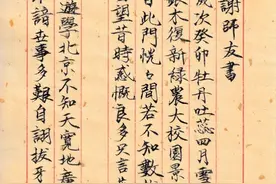 謝師友書
次癸卯牡丹吐蕊四月雪
木復新綠農大校園景
此門恍々間若不知數
望昔時感慨良多只言
遊學北京不知天寬地
諳世事多艱自詡拔牙